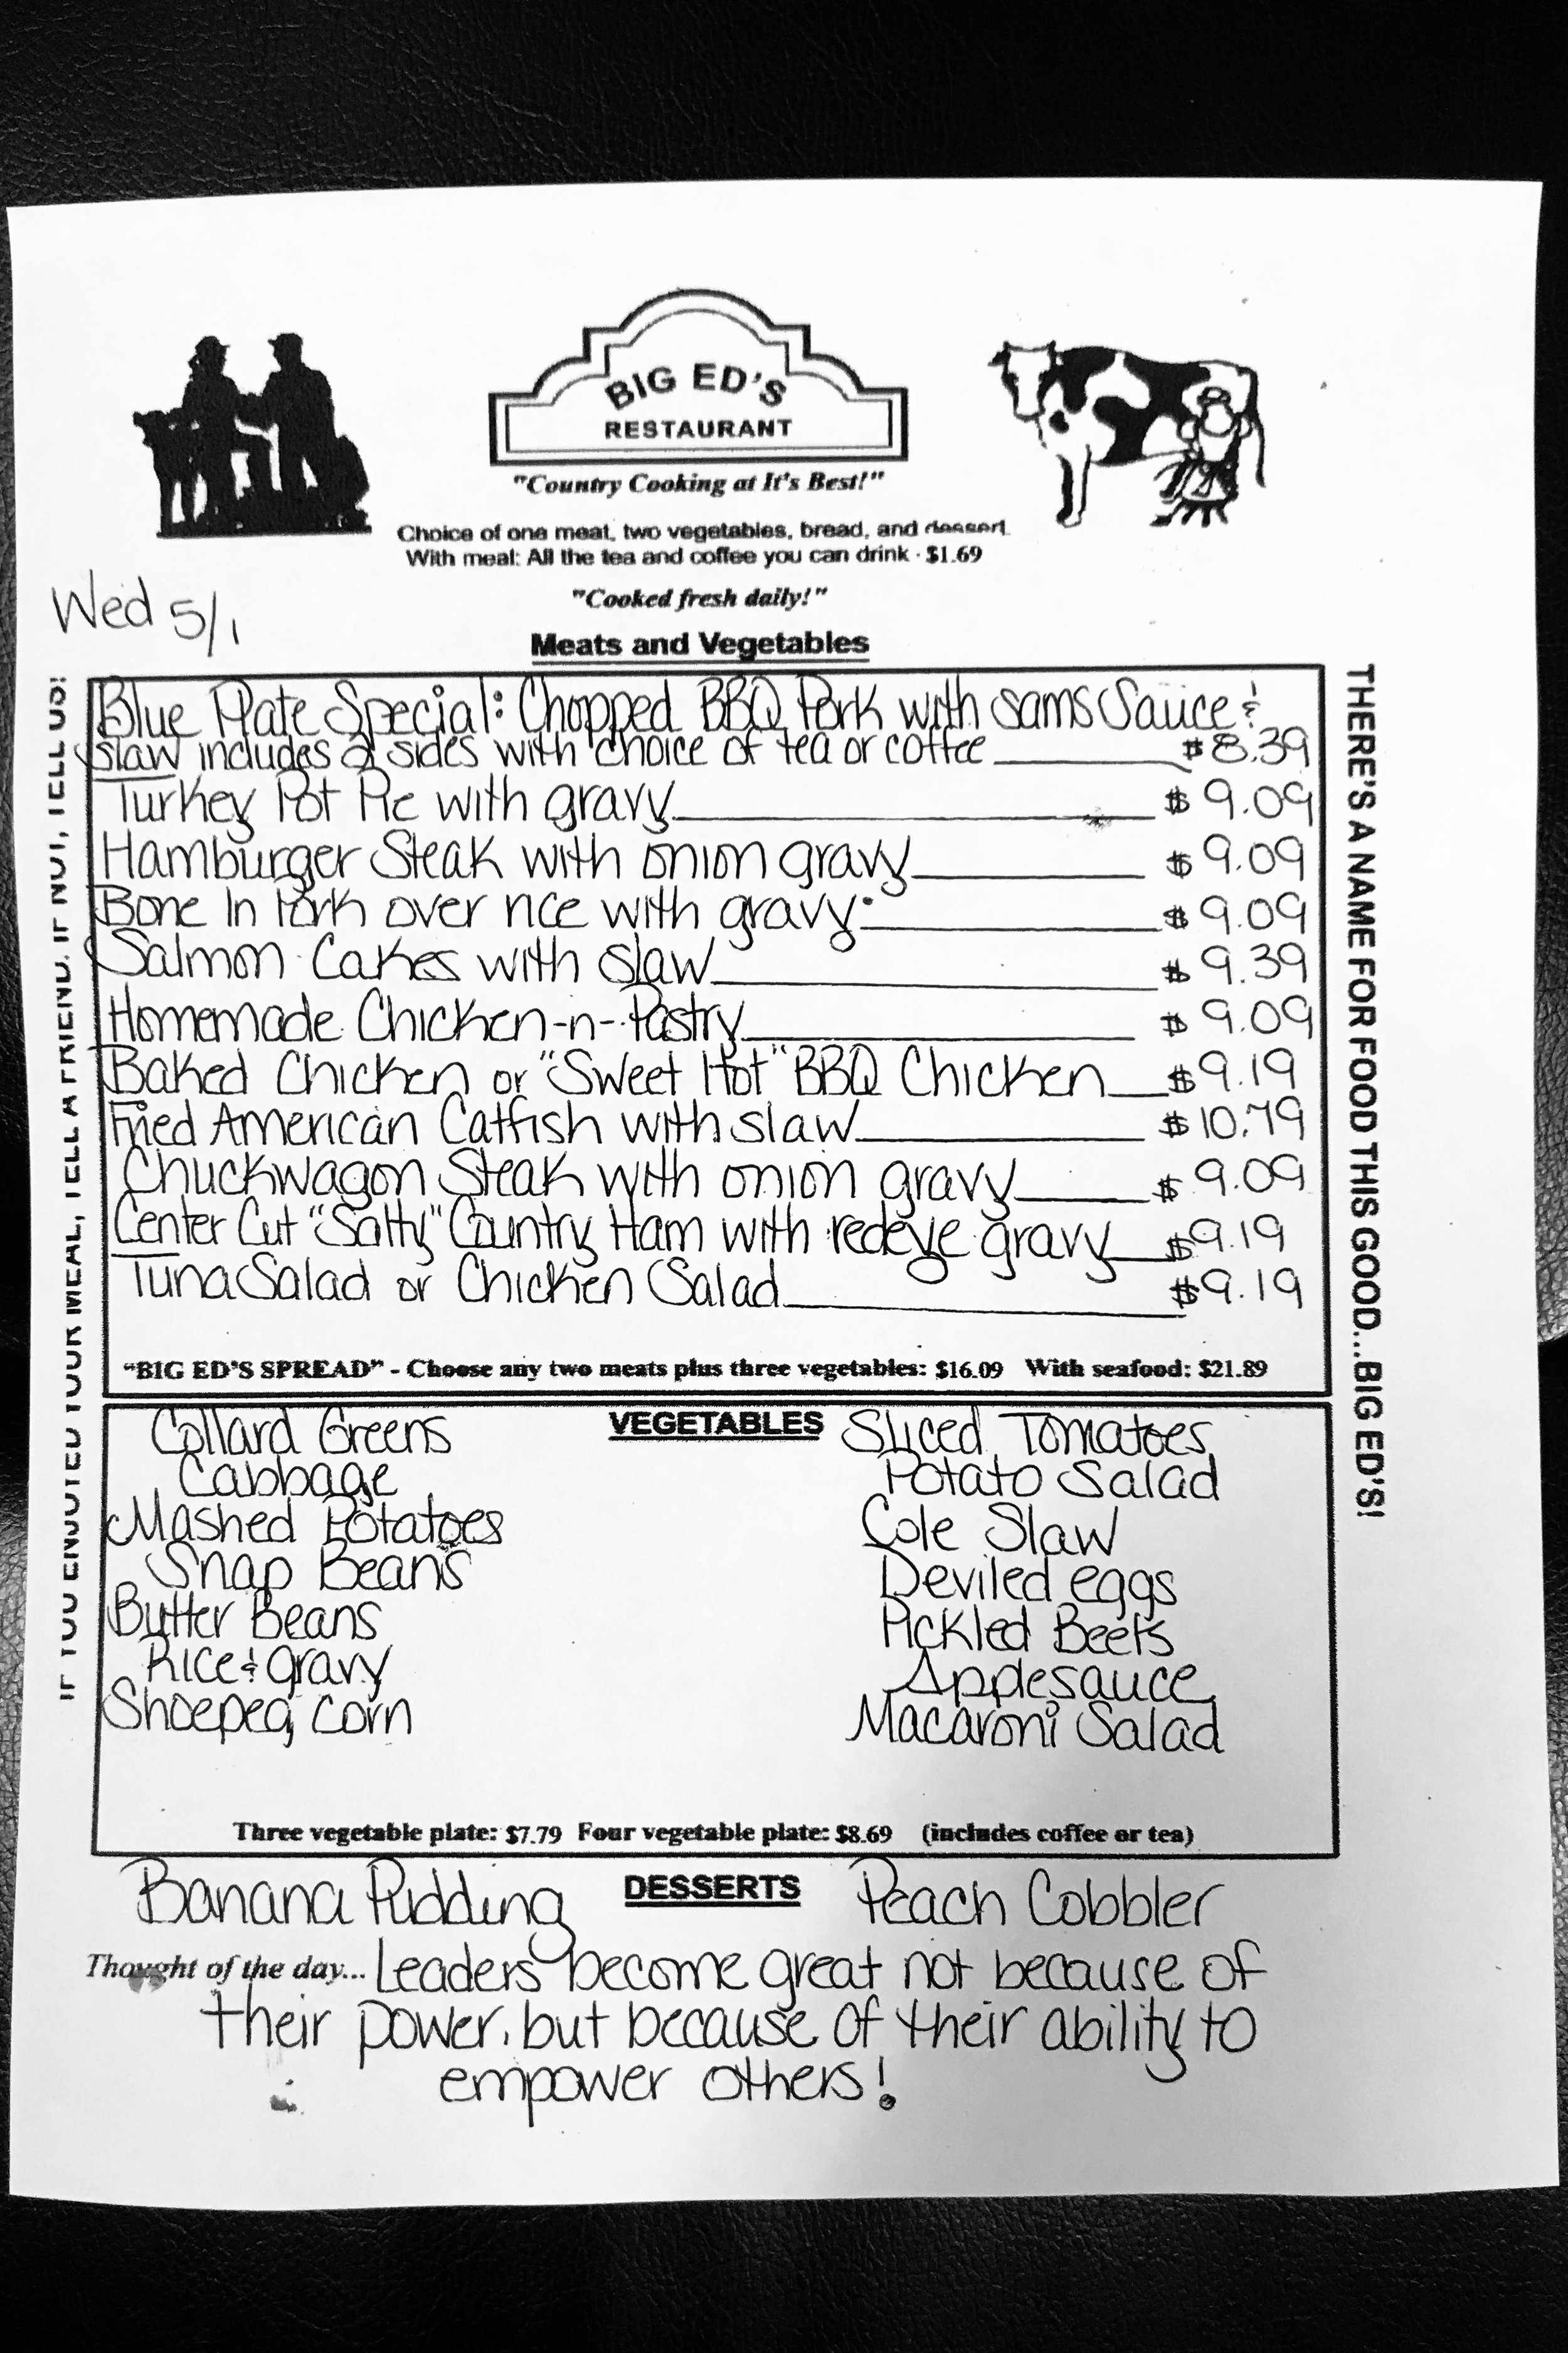 BIG ED'S
RESTAURANT
"Country Cooking at It's Best!"
Choice of one meat, two vegetables, bread, and dessert.
With meal: All the tea and coffee you can drink · $1.69
"Cooked fresh daily!"
Wed 5/1
Meats and Vegetables
Blue Plate Special: Chopped BBQ Pork with sams Sauce &
slaw includes 2 sides with choice of tea or coffee $8.39
Turkey Pot Pie with gravy $9.09
Hamburger Steak with onion gravy $9.09
Bone In Pork over rice with gravy $9.09
Salmon Cakes with slaw $9.39
Homemade Chicken-n-Pastry $9.09
Baked Chicken or "Sweet Hot" BBQ Chicken $9.19
Fried American Catfish with slaw $10.79
Chuckwagon Steak with onion gravy $9.09
Center Cut "Salty" Country Ham with redeye gravy $9.19
Tuna Salad or Chicken Salad $9.19
"BIG ED'S SPREAD" - Choose any two meats plus three vegetables: $16.09 With seafood: $21.89
VEGETABLES
Collard Greens
Cabbage
Mashed Potatoes
Snap Beans
Butter Beans
Rice & gravy
Shoepeg corn
Sliced Tomatoes
Potato Salad
Cole Slaw
Deviled eggs
Pickled Beets
Applesauce
Macaroni Salad
Three vegetable plate: $7.79 Four vegetable plate: $8.69 (includes coffee or tea)
DESSERTS
Banana Pudding
Peach Cobbler
Thought of the day... Leaders become great not because of
their power, but because of their ability to
empower others!
IF YOU ENJOYED YOUR MEAL, TELL A FRIEND. IF NOT, TELL US!
THERE'S A NAME FOR FOOD THIS GOOD...BIG ED'S!